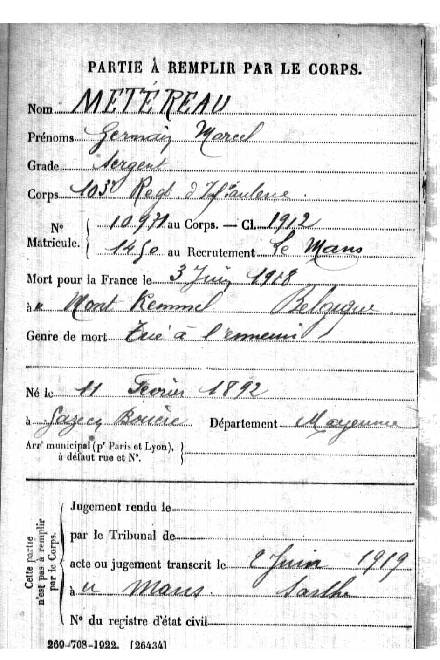 PARTIE À REMPLIR PAR LE CORPS.
Nom METÉREAU
Prénoms Germain Marcel
Grade Sergent
Corps 103e Regt d'Infanterie
N° Matricule. { 10.971 au Corps. — Cl. 1912
1450 au Recrutement Le Mans
Mort pour la France le 3 Juin 1918
à Mont Kemmel Belgique
Genre de mort Tué à l'ennemi
Né le 11 Fevrier 1892
à Département Mayenne
Arrt municipal (pr Paris et Lyon), à défaut rue et N°.
Cette partie n'est pas à remplir par le Corps.
Jugement rendu le
par le Tribunal de
acte ou jugement transcrit le 2 Juin 1919
à Mans Sarthe
N° du registre d'état civil
269-708-1922. [26434]